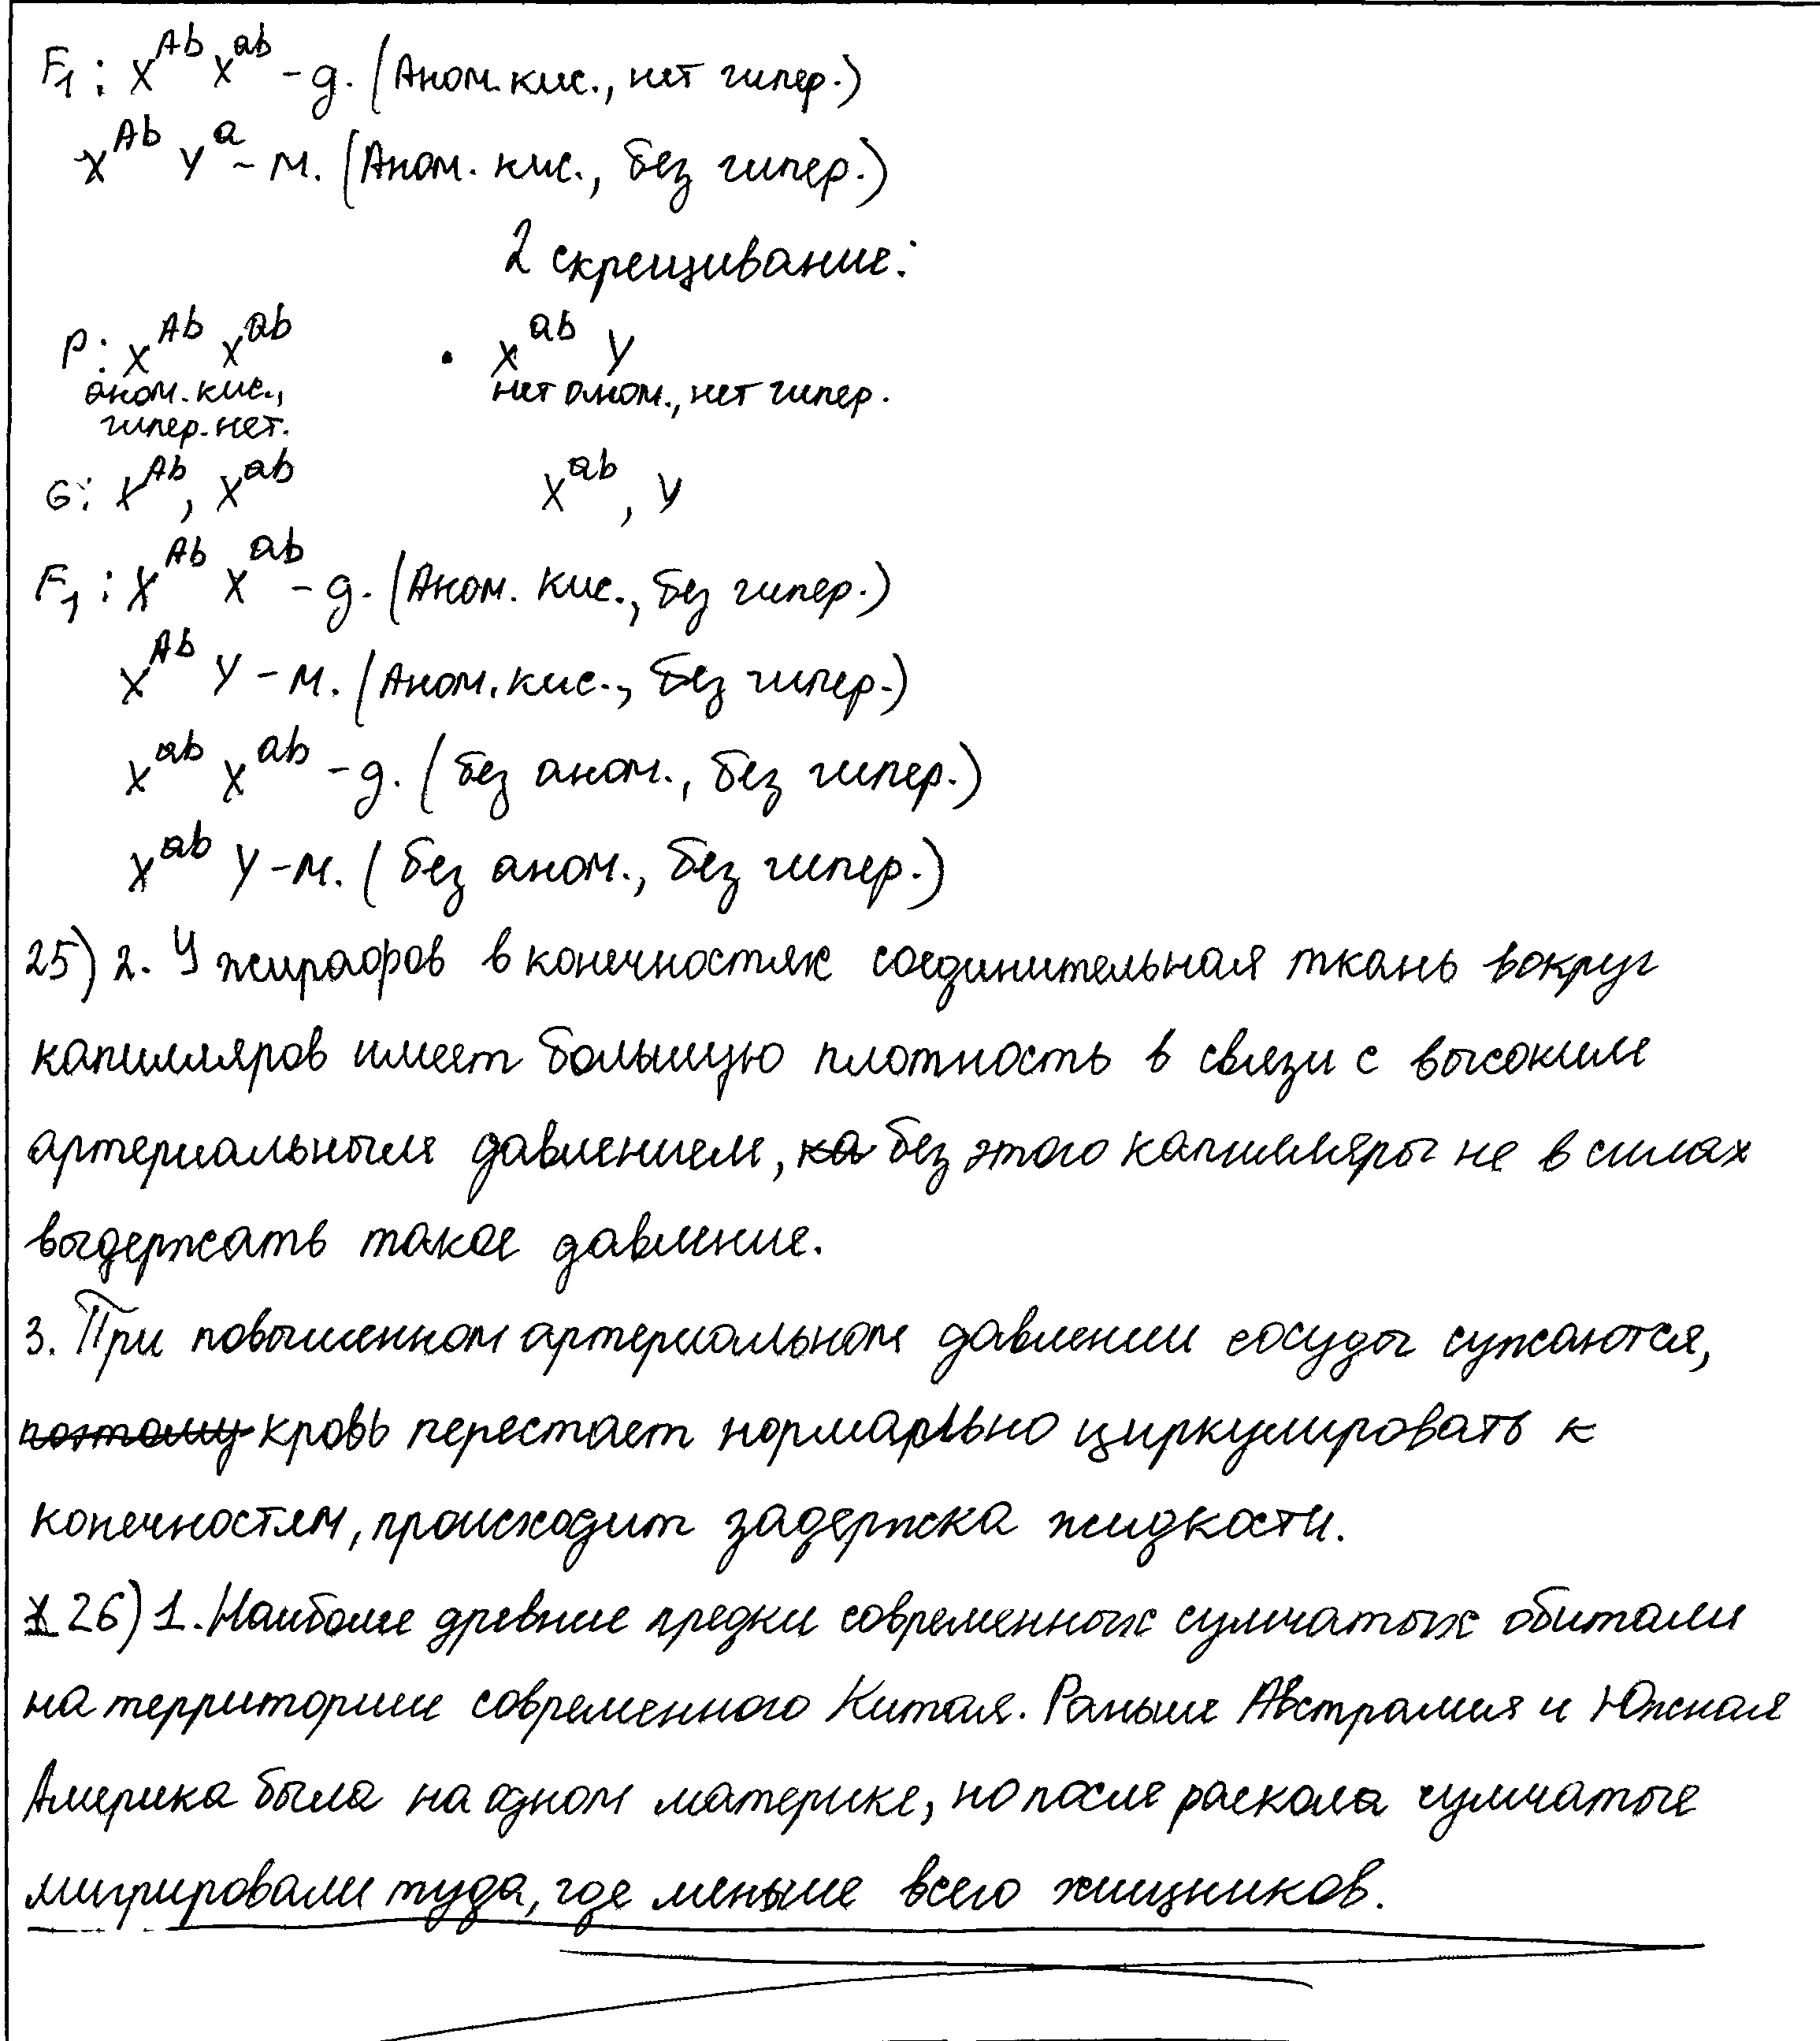 F₁: X^Ab X^ab – д. (Аном. кис., нет гипер.)
X^Ab Y^a – м. (Аном. кис., без гипер.)
2 скрещивание:
P: X^Ab X^ab · X^ab Y
аном. кис., нет аном., нет гипер.
гипер. нет.
G: X^Ab, X^ab X^ab, Y
F₁: X^Ab X^ab – д. (Аном. кис., без гипер.)
X^Ab Y – м. (Аном. кис., без гипер.)
X^ab X^ab – д. (без аном., без гипер.)
X^ab Y – м. (без аном., без гипер.)
25) 2. У жирафов в конечностях соединительная ткань вокруг
капилляров имеет большую плотность в связи с высоким
артериальным давлением, ка без этого капилляры не в силах
выдержать такое давление.
3. При повышенном артериальном давлении сосуды сужаются,
поэтому кровь перестает нормально циркулировать к
конечностям, происходит задержка жидкости.
26) 1. Наиболее древние предки современных сумчатых обитали
на территории современного Китая. Раньше Австралия и Южная
Америка была на одном материке, но после раскола сумчатые
мигрировали туда, где меньше всего хищников.